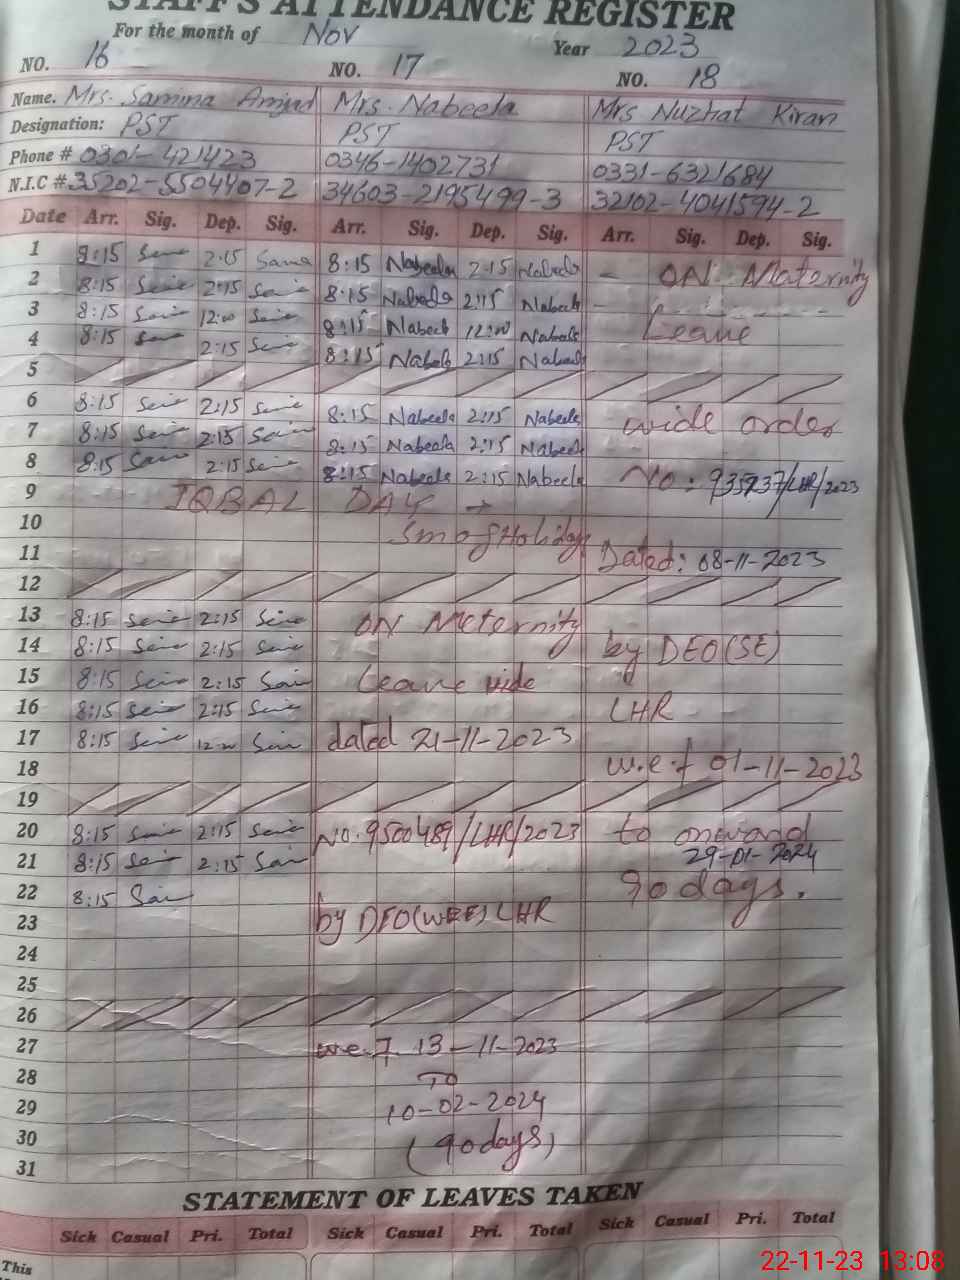 STAFF'S ATTENDANCE REGISTER
For the month of Nov Year 2023
NO. 16 NO. 17 NO. 18
Name. Mrs. Samina Amjad Mrs. Nabeela Mrs Nuzhat Kiran
Designation: PST PST PST
Phone # 0301-421423 0346-1402731 0331-6321684
N.I.C # 35202-5504407-2 34603-2195499-3 32102-4041594-2
Date Arr. Sig. Dep. Sig. Arr. Sig. Dep. Sig. Arr. Sig. Dep. Sig.
1 8:15 2:15 8:15 Nabeela 2:15 Nabeela - ON Maternity
2 8:15 2:15 8:15 Nabeela 2:15 Nabeela -
3 8:15 12:00 8:15 Nabeela 12:00 Nabeela Leave
4 8:15 2:15 8:15 Nabeela 2:15 Nabeela
5
6 8:15 2:15 8:15 Nabeela 2:15 Nabeela wide order
7 8:15 2:15 8:15 Nabeela 2:15 Nabeela
8 8:15 2:15 8:15 Nabeela 2:15 Nabeela No: /LHR/2023
9 IQBAL DAY →
10 Smog Holiday
11 Dated: 08-11-2023
12
13 8:15 2:15 ON Meternity
14 8:15 2:15 by DEO(SE)
15 8:15 2:15 Leave vide
16 8:15 2:15 LHR
17 8:15 12:00 dated 21-11-2023
18 w.e.f 01-11-2023
19
20 8:15 2:15 No. 9500489/LHR/2023 to onward
21 8:15 2:15 29-01-2024
22 8:15 90 days.
23 by DEO(WEE) LHR
24
25
26
27 w.e.f. 13-11-2023
28 To
29 10-02-2024
30 (90 days)
31
STATEMENT OF LEAVES TAKEN
Sick Casual Pri. Total Sick Casual Pri. Total Sick Casual Pri. Total
This
22-11-23 13:08